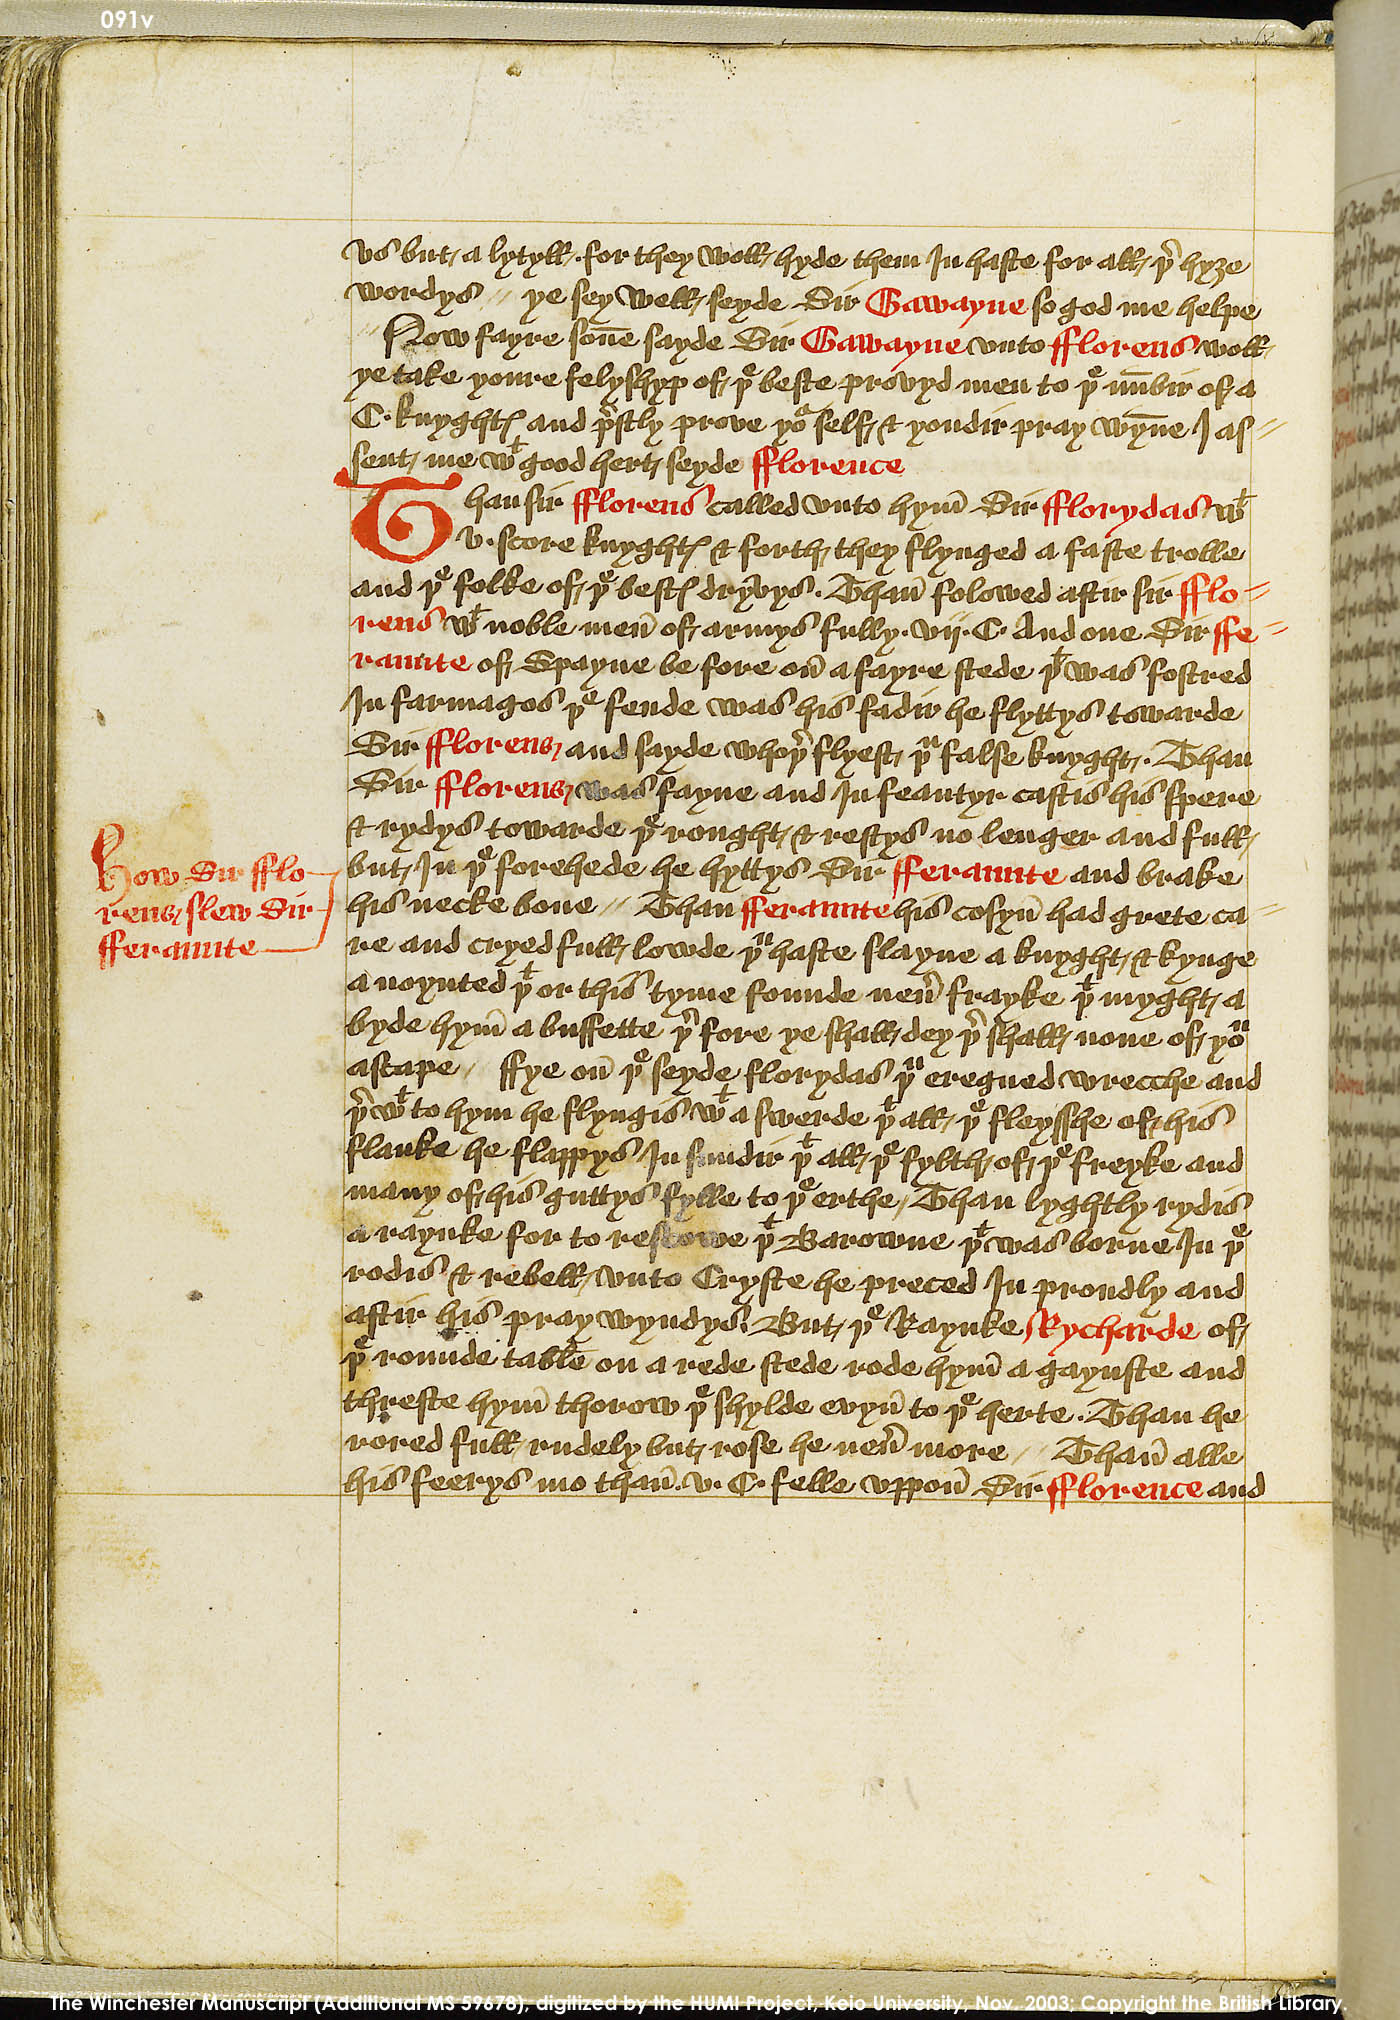 091v
vs but a lytyll · for they woll hyde them In haste for all þʳ hyȝe
wordys // ye sey well seyde Sir Gawayne so god me helpe
// Now fayre son̄e sayde Sir Gawayne vnto fflorens woll
ye take youre felyshyp of þᵉ beste provyd men to þᵉ nūbir of a
C· knyghtꝭ and pʳstly prove yoʳ self & yondir pray wyn̄e I as=
sent me wᵗ good hert seyde fflorence
Than sir fflorens called vnto hym̄ Sir fflorydas wᵗ
v· score knyghtꝭ & forth they flynged a faste trotte
and þᵉ folke of þᵉ bestꝭ dryvys · Than̄ folowed aftir sir fflo=
rens wᵗ noble men̄ of armys fully · vij · C · And one Sir ffe=
raunte of Spayne be fore on̄ a fayre stede þᵗ was fostred
In farmagos þᵉ fende was his fadir he flyttys towarde
Sir fflorens and sayde whoþʳ flyest þᵘ false knyght · Than
Sir fflorens was fayne and In feautyr castis his spere
& rydys towarde þᵉ rought & restys no lenger and full
but In þᵉ forehede he hyttys Sir fferaunte and brake
his necke bone // Than fferaunte his cosyn̄ had grete ca=
re and cryed full lowde þᵘ haste slayne a knyght & kynge
a noynted þᵗ or this tyme founde neuʳ frayke þᵗ myght a
byde hym̄ a buffette þʳ fore ye shall dey þʳ shall none of yoᵘ
astape // ffye on̄ þᵉ seyde florydas þᵘ eregned wrecche and
þʳ wᵗ to hym he flyngis wᵗ a swerde þᵗ all þᵉ fleysshe of his
flanke he flappys In sundir þᵗ all þᵉ fylth of þᵉ freyke and
many of his guttys fylle to þᵉ erthe / Than lyghtly rydis
a raynke for to rescowe þᵗ Barowne þᵗ was borne In þᵉ
rodis & rebell vnto Cryste he preced In proudly and
aftir his pray wyndys · But þᵉ Raynke Rycharde of
þᵉ rounde table on a rede stede rode hym̄ a gaynste and
threste hym̄ thorow þᵉ shylde evyn̄ to þᵉ herte · Than he
rored full rudely but rose he neuʳ more // Than̄ alle
his feerys mo than̄ · v · C · felle vppon̄ Sir fflorence and
How Sir fflo
rens slew Sir
fferaunte
The Winchester Manuscript (Additional MS 59678), digitized by the HUMI Project, Keio University, Nov. 2003; Copyright the British Library.